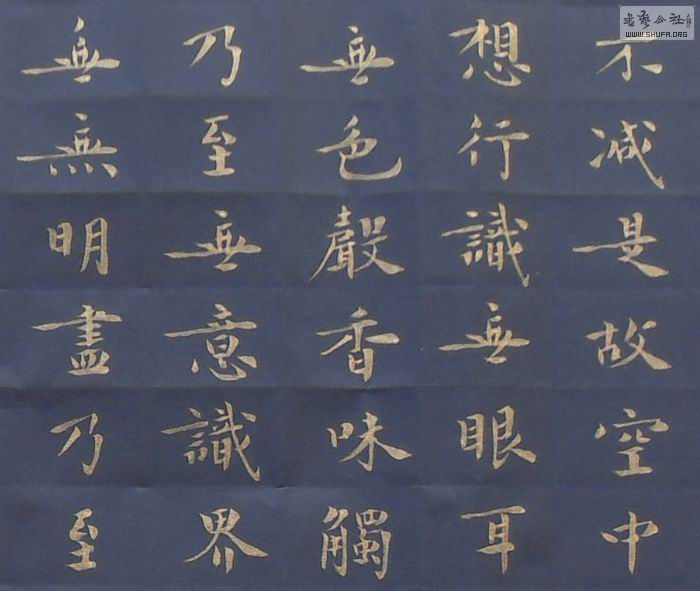 不减是故空中
想行識無眼耳
無色聲香味觸
乃至無意識界
無無明盡乃至
書藝公社
WWW.SHUFA.ORG